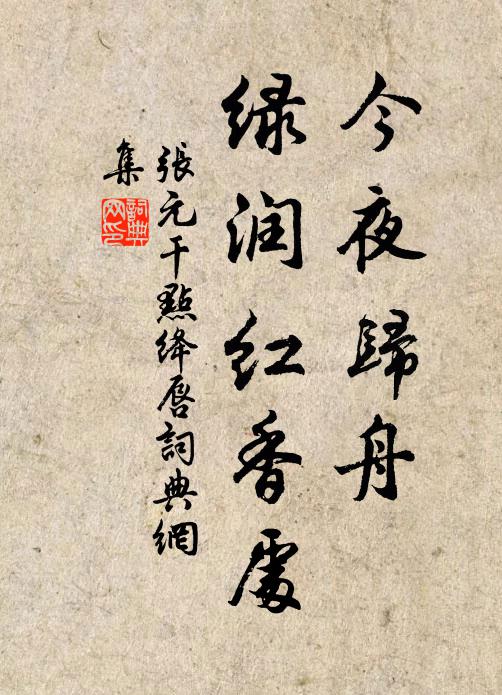 今夜歸舟
綠润紅香處
張元干點絳唇詞典網
集
詞典網印